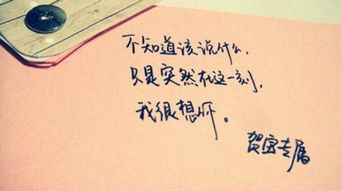 不知道该说什么,
只是突然在这一刻,
我很想你。
贺宝专属